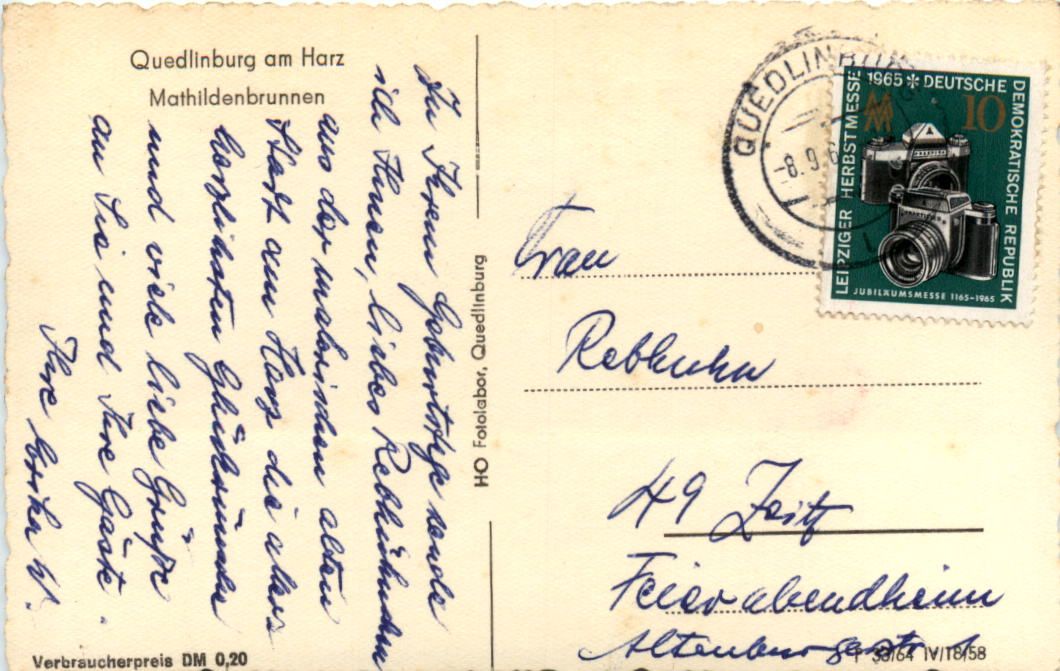 Quedlinburg am Harz
Mathildenbrunnen
Zu Ihrem Geburtstage sende
ich Ihnen, liebes Rebhühnchen
aus der malerischen alten
Stadt am Harz die aller-
herzlichsten Glückwünsche
und viele liebe Grüße
an Sie und Ihre Gäste.
Ihre Erika W.
Verbraucherpreis DM 0,20
HO Fotolabor, Quedlinburg
QUEDLINBURG
-8.9.6
LEIPZIGER HERBSTMESSE 1965 * DEUTSCHE DEMOKRATISCHE REPUBLIK
MM
10
JUBILÄUMSMESSE 1165-1965
Frau
Rebhuhn
49 Zeitz
Feierabendheim
Altenburgerstr.
T 33/64 IV/18/58